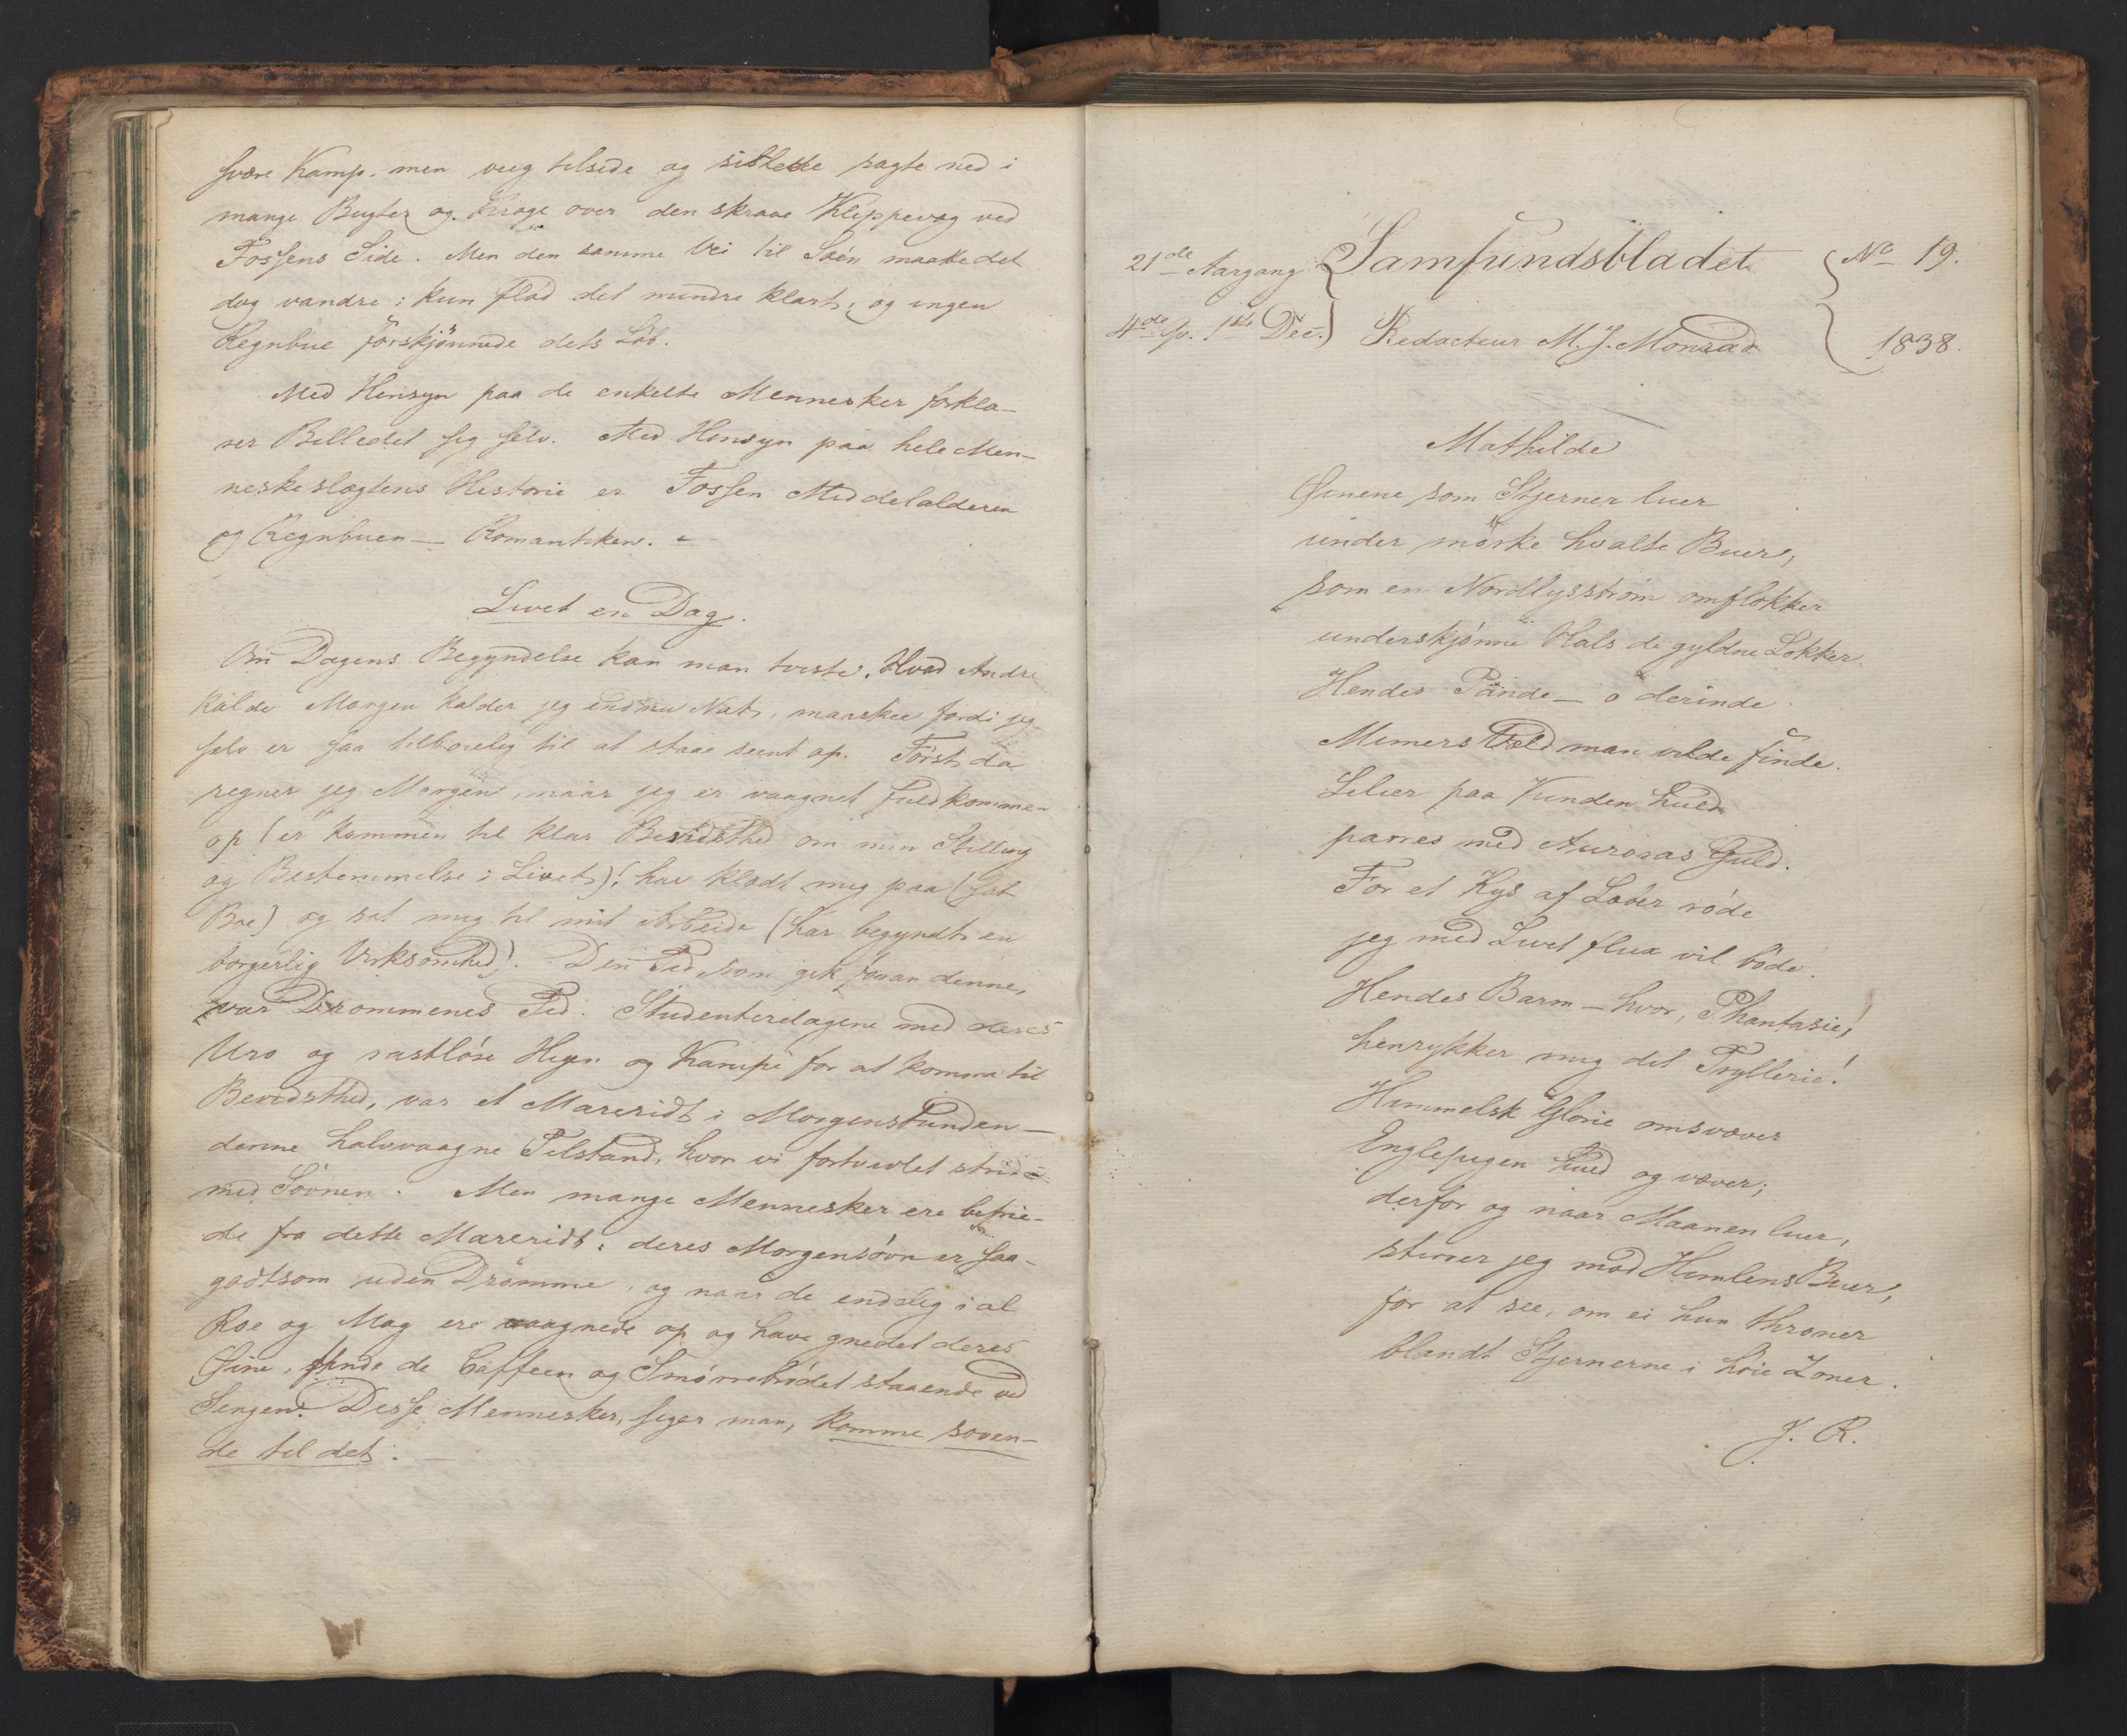 svære Kamp. men veeg tilside og sislede sagte ned i
mange Bugter og Kroge over den skraae Klippevæg ved
Fossens Side. Men den samme Vei til Søen maatte det
dog vandre: kun flød det mindre klart, og ingen
Regnbue forskjønnede dets Løb.
Med Hensyn paa de enkelte Mennesker forkla-
rer Billedet sig selv. Med Hensyn paa hele Men-
neskeslægtens Historie er Fossen Middelalderen
og Regnbuen — Romantiken. —
Livet en Dag.
Om Dagens Begyndelse kan man tviste. Hvad Andre
kalde Morgen kalder jeg endnu Nat, maaskee fordi jeg
selv er saa tilbøielig til at staae seent op. Først da
regner jeg Morgen, naar jeg er vaagnet fuldkommen
op (er kommen til klar Bevidsthed om min Stilling
og Bestemmelse i Livet), har klædt mig paa (
Boe) og sat mig til mit Arbeide (har begyndt en
borgerlig Virksomhed). Den Tid, som gik foran denne,
var Drømmenes Tid. Studenterdagene med deres
Uro og rastløse Higen og Kampe for at komme til
Bevidsthed, var et Mareridt i Morgenstunden —
denne halvvaagne Tilstand, hvor vi fortvivlet stride
med Søvnen. Men mange Mennesker ere befrie-
de fra dette Mareridt; deres Morgensøvn er saa-
godtsom uden Drømme, og naar de endelig i al
Roe og Mag ere vaagnede op og have gnedet deres
Øine, finde de Caffeen og Smørrebrødet staaende ved
Sengen. Disse Mennesker, siger man, komme soven-
de til det. —
21de Aargang { Samfundsbladet } No 19.
4de Qv. 1ste Dec. } Redacteur M. J. Monrad } 1838.
Mathilde
Øinene som Stjerner luer
under mørke hvalte Buer,
som en Nordlysstrøm omflokker
underskjønne Hals de gyldne Lokker.
Hendes Pande — o derinde
Mimers Væld man vilde finde.
Lilier paa Kinden huld
parres med Auroras Guld.
For et Kys af Læber røde
jeg med Livet flux vil bøde.
Hendes Barm — hvor, Phantasie,
henrykker mig det Trylleri!
Himmelsk Glorie omsvæver
Englepigen huld og væver;
derfor og naar Maanen luer,
stirrer jeg mod Himlens Buer,
for at see, om ei hun throner
blandt Stjernerne i høie Zoner.
J. R.